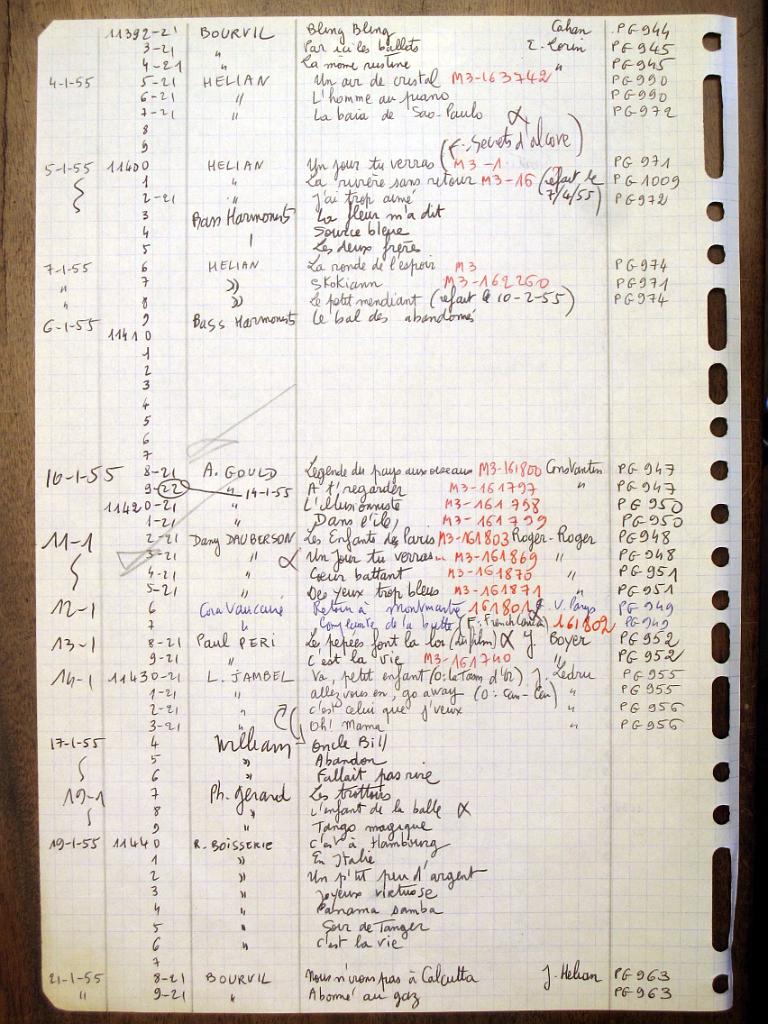 11392-21 BOURVIL Bling Bling Cahan PG 944
3-21 " Par ici les ballets E. Lorin PG 945
4-21 " La môme rustine " PG 945
4-1-55 5-21 HELIAN Un air de cristal M3-163742 PG 990
6-21 " L'homme au piano PG 990
7-21 " La baia de Sao-Paulo PG 972
8
9
5-1-55 11400 HELIAN Un jour tu verras (F. Secrets d'alcove) M3-1 PG 971
1 " La rivière sans retour M3-16 (refait le 7/4/55) PG 1009
2-21 " J'ai trop aimé PG 972
3 Bass Harmonists La fleur m'a dit
4 Source bleue
5 Les deux frères
7-1-55 6 HELIAN La ronde de l'espoir M3 PG 974
" 7 " Skokiann M3-162260 PG 971
" 8 " Le petit mendiant (refait le 10-2-55) PG 974
6-1-55 9 Bass Harmonists Le bal des abandonnés
11410
1
2
3
4
5
6
7
10-1-55 8-21 A. GOULD Légende du pays aux oiseaux M3-161800 Constantin PG 947
9-22 " 14-1-55 A t'regarder M3-161797 " PG 947
11420-21 " L'illusionniste M3-161798 PG 950
1-21 " Dans l'île M3-161799 PG 950
11-1 2-21 Dany DAUBERSON Les Enfants de Paris M3-161803 Roger-Roger PG 948
3-21 " α Un jour tu verras M3-161869 " PG 948
4-21 " Coeur battant M3-161870 PG 951
5-21 " Des yeux trop bleus M3-161871 PG 951
12-1 6 Cora Vaucaire Retour à Montmartre 161801 V. Parys PG 949
7 " Complainte de la butte (F: French Cancan) 161802 PG 949
13-1 8-21 Paul PERI Les pépées font la loi (du film) α J. BOYER PG 952
9-21 " C'est la vie M3-161740 " PG 952
14-1 11430-21 L. JAMBEL Va, petit enfant J. Ledru PG 955
1-21 " allez vous en, go away (O: Can-Can) " PG 955
2-21 " c'est celui que j'veux " PG 956
3-21 " Oh! Mama " PG 956
17-1-55 4 William Oncle Bill
5 " Abandon
6 " Fallait pas rire
19-1 7 Ph. Gérard Les trottoirs
8 " L'enfant de la balle α
9 " Tango magique
19-1-55 11440 R. BOISSERIE C'est à Hambourg
1 " En Italie
2 " Un p'tit peu d'argent
3 " Joyeux virtuose
4 " Panama samba
5 " Soir de Tanger
6 " C'est la vie
7
21-1-55 8-21 BOURVIL Nous n'irons pas à Calcutta J. Helian PG 963
" 9-21 " Abonné au gaz PG 963